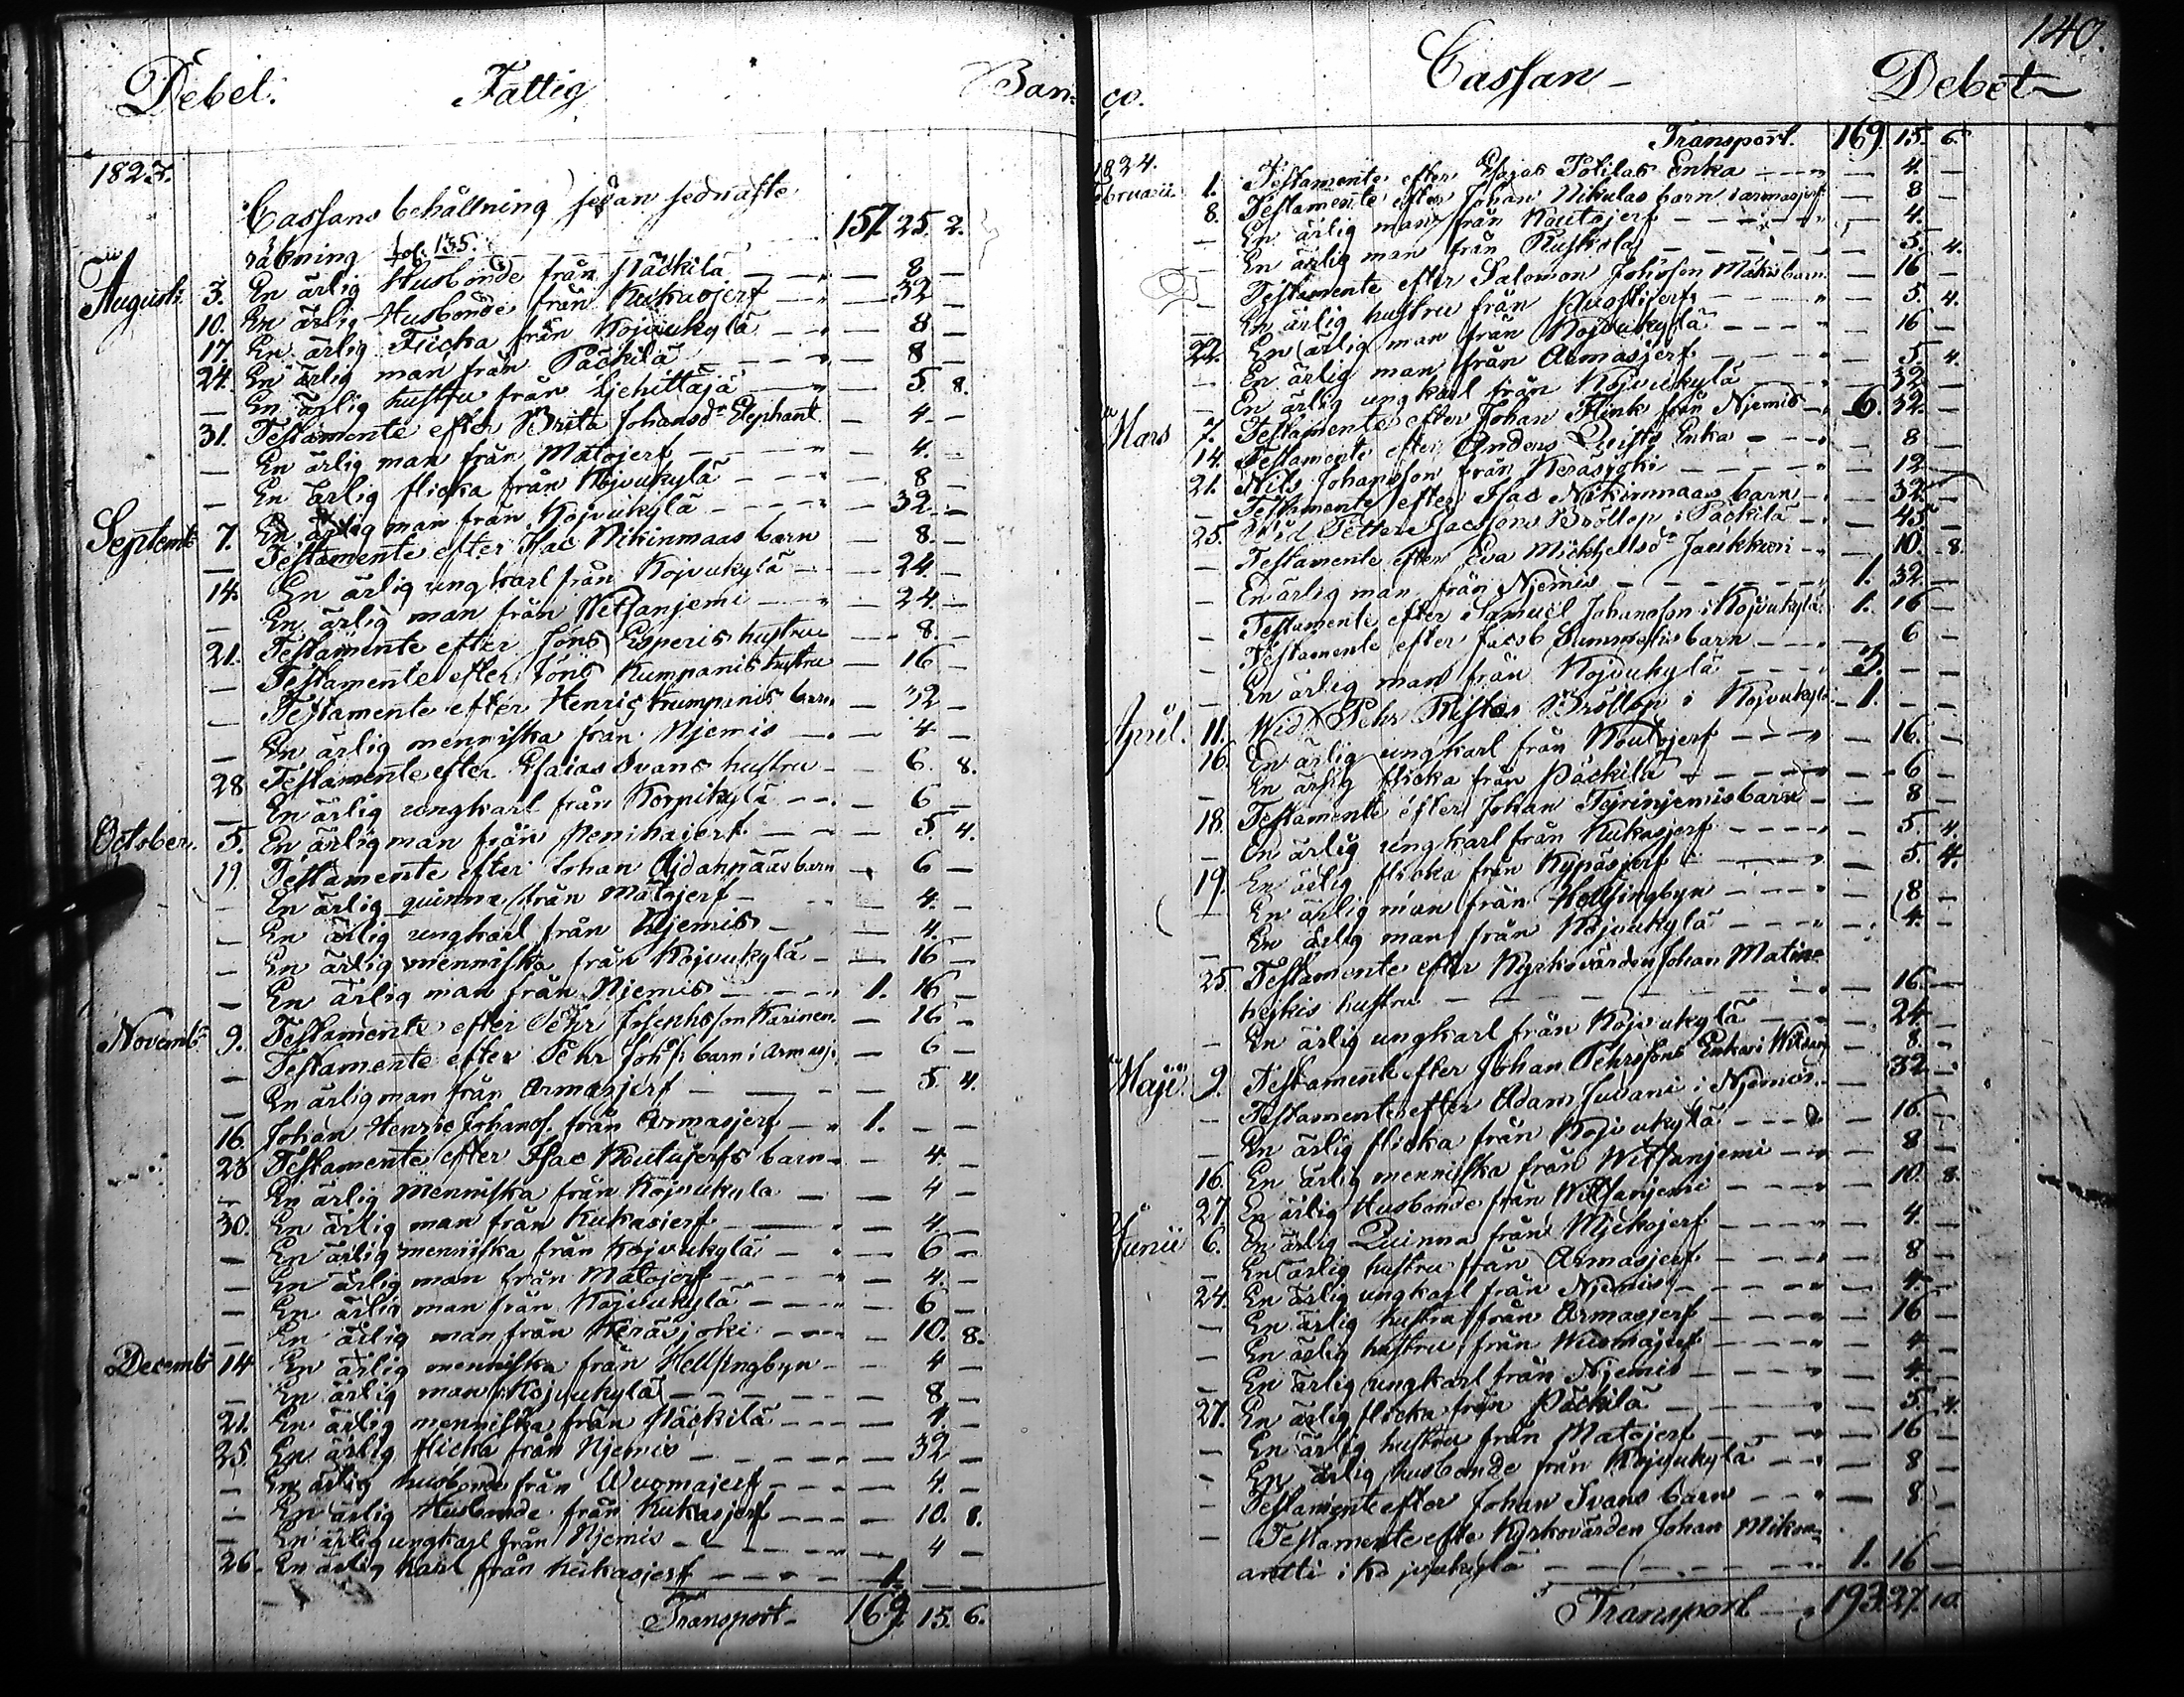 Debet. Fattig Ban=
1823.
Cassans behållning sedan sednaste
räkning fol: 135. 157. 25. 2.
Augusti 3. En ärlig Husbonde från Päckilä — 8 —
10. En ärlig Husbonde från Kukasjerf — 32 —
17. En ärlig Flicka från Kojvukylä — 8 —
24. En ärlig man från Päckilä — 8 —
— En ärlig hustru från Ljehittäjä — 5. 8.
31. Testamente efter Brita Johansdr Elephant — 4 —
— En ärlig man från Matojerf — 4. —
— En ärlig flicka från Kojvukylä — 8 —
— En ärlig man från Kojvukylä — 32 —
Septemb 7. Testamente efter Isac Nikinmaas barn — 8 —
— En ärlig ungkarl från Kojvukylä — 24 —
14. En ärlig man från Witsanjemi — 24 —
— Testamente efter Jöns Esperis hustru — 8. —
21. Testamente efter Jöns Kumpanis hustru — 16 —
— Testamente efter Henric Kumpanis barn — 32 —
— En ärlig menniska från Njemis — 4 —
— Testamente efter Esaias Ivans hustru — 6. 8.
28 En ärlig ungkarl från Korpikylä — 6 —
October. 5. En ärlig man från Penihajerf — 5. 4.
19. Testamente efter Johan Ajdanpääs barn — 6 —
— En ärlig quinna från Matojerf — 4. —
— En ärlig ungkarl från Njemis — 4. —
— En ärlig menniska från Kojvukylä — 16 —
— En ärlig man från Njemis 1. 16 —
Novemb 9. Testamente efter Pehr Josephsson Karinen — 16 —
— Testamente efter Pehr Johss barn i Armasj: — 6 —
— En ärlig man från Armasjerf — 5. 4.
16. Johan Henric Johanss. från Armasjerf 1. — —
23 Testamente efter Isac Koutujerfs barn — 4. —
— En ärlig Menniska från Kojvukyla — 4 —
30. En ärlig man från Kukasjerf — 4 —
— En ärlig menniska från Kojvukylä — 6 —
— En ärlig man från Matojerf — 4. —
— En ärlig man från Kojvukylä — 6 —
— En ärlig man från Keräsjoki — 10. 8.
Decemb 14 En ärlig menniska från Hellsingbyn — 4 —
— En ärlig man i Kojvukylä — 8 —
21. En ärlig menniska från Päckilä — 4. —
25. En ärlig flicka från Njemis — 32 —
— En ärlig husbonde från Wuomajerf — 4. —
— En ärlig Husbonde från Kukasjerf — 10. 8.
— En ärlig ungkarl från Njemis — 4 —
26. En ärlig Karl från Kukasjerf 1. — —
Transport — 169. 15. 6.
140.
co. Cassan — Debet
Transport. 169. 15. 6.
1824.
Februarii 1. Testamente efter Esajas Potilas Enka — 4. —
8. Testamente efter Johan Nikulas barn i armasjerf — 8 —
— En ärlig man från Koutojerf — 4. —
— En ärlig man från Ruskola — 5. 4.
— Testamente efter Salomon Johsson Mäkis barn — 16 —
— En ärlig hustru från — 5. 4.
— En ärlig man från Kojvukylä — 16 —
22. En ärlig man från Armasjerf — 5. 4.
— En ärlig ungkarl från Kojvukylä — 32 —
Mars 7. Testamente efter Johan Flink från Njemis 6. 32. —
14. Testamente efter Anders Quists Enka — 8 —
21. Nils Johansson från Keräsjoki — 12 —
— Testamente efter Isac Nikinmaas barn — 32. —
25. Wid Petter Isacssons Bröllop i Päckilä — 45. —
— Testamente efter Eva Michelsdr — 10. 8.
— En ärlig man från Njemis 1. 32. —
— Testamente efter Samuel Johansson i Kojvukylä 1. 16 —
— Testamente efter Jacob Lummelis barn — 6 —
— En ärlig man från Kojvukylä 3. — —
April. 11. Wid Pehr Ristas Bröllop i Kojvukylä 1. — —
16. En ärlig ungkarl från Koutojerf — 16. —
— En ärlig flicka från Päckilä — 6 —
18. Testamente efter Johan barn — 8 —
— En ärlig ungkarl från Kukasjerf — 5. 4.
19. En ärlig flicka från Kypäsjerf — 5. 4.
— En ärlig man från Hellsingbyn — 8 —
— En ärlig man från Kojvukylä — 4. —
25. Testamente efter Kyrkovärden Johan Matin=
hejkis hustru — 16. —
— En ärlig ungkarl från Kojvukylä — 24. —
Maji 9. Testamente efter Johan Pehrssons Enka i — 8. —
— Testamente efter Adam i Njemis — 32 —
— En ärlig flicka från Kojvukylä — 16. —
16. En ärlig menniska från Witsanjemi — 8 —
27 En ärlig Husbonde från Witsanjemi — 10. 8.
Junii 6. En ärlig Quinna från Mjekojerf — 4. —
— En ärlig hustru från Armasjerf — 8 —
24. En ärlig ungkarl från Njemis — 4. —
— En ärlig hustru från Armasjerf — 16 —
— En ärlig hustru från Wuomajerf — 4 —
— En ärlig ungkarl från Njemis — 4. —
27. En ärlig flicka från Päckilä — 5. 4.
— En ärlig hustru från Matojerf — 16 —
— En ärlig husbonde från Kojvukylä — 8 —
— Testamente efter Johan Ivans barn — 8. —
— Testamente efte Kyrkovärden Johan Mikon=
antti i Kojvukylä 1. 16 —
Transport — 193. 27. 10.